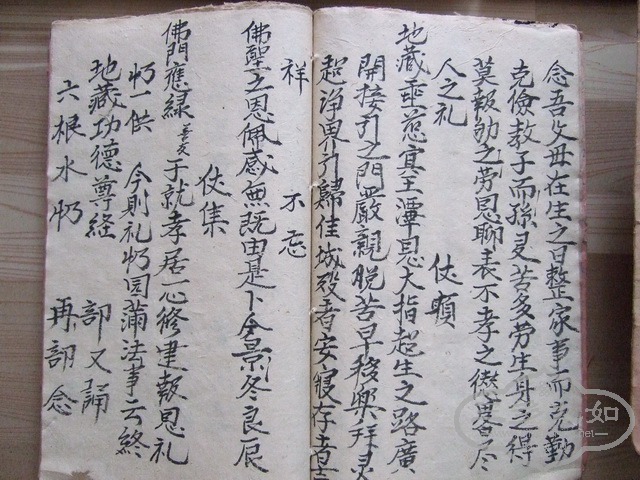 念吾父母在生之日整家事而克勤
克儉教子而孫受苦多劳生身之得
莫報劬之劳恩聊表不孝之愆畧尽
人之礼 伏願
地藏垂慈冥主潭恩大指超生之路廣
開接引之門嚴親脱苦早發興拜灵
超淨界引歸佳城殁者安寢存者吉
祥 不忘
佛聖之恩佩感無既由是卜今景冬良辰
伏集
佛門應緣善友于就孝居一心修建報恩礼
忏一供 今則礼忏园蒲法事云終
地藏功德尊経 部又誦
六根水忏 再詡念
如
net